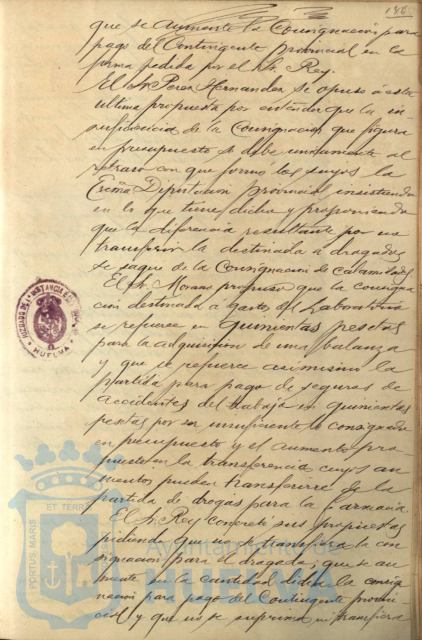 186
que se aumente la Consignación para
pago del Contingente provincial en la
forma pedida por el Sr. Rey.
El Sr. Perez Hernandez se opuso á esta
última propuesta por entender que la in-
suficiencia de la Consignación que figura
en presupuesto se debe unicamente al
retraso con que formó los suyos la
Excma Diputación provincial insistiendo
en lo que tiene dicho y proponiendo
que la diferencia resultante por no
transferir la destinada a dragados
se saque de la Consignación de Calamidades
El Sr. Morano propuso que la consigna-
ción destinada a gastos del Laboratorio
se refuerce en quinientas pesetas
para la adquisición de una balanza
y que se refuerce asimismo la
partida para pago de seguros de
accidentes del trabajo en quinientas
pesetas por ser insuficiente lo consignado
en presupuesto y el aumento pro-
puesto en la transferencia cuyos au-
mentos pueden transferirse de la
partida de drogas para la farmacia.
El Sr. Rey concretó sus propuestas
pidiendo que no se transfiera la con-
signación para el dragado; que se au-
mente en la cantidad dicha la consig-
nación para pago del Contingente provin-
cial y que no se suprima ni transfiera
HUELVA
PORTUS MARIS
ET TERRÆ
Ayuntamiento de
HUELVA